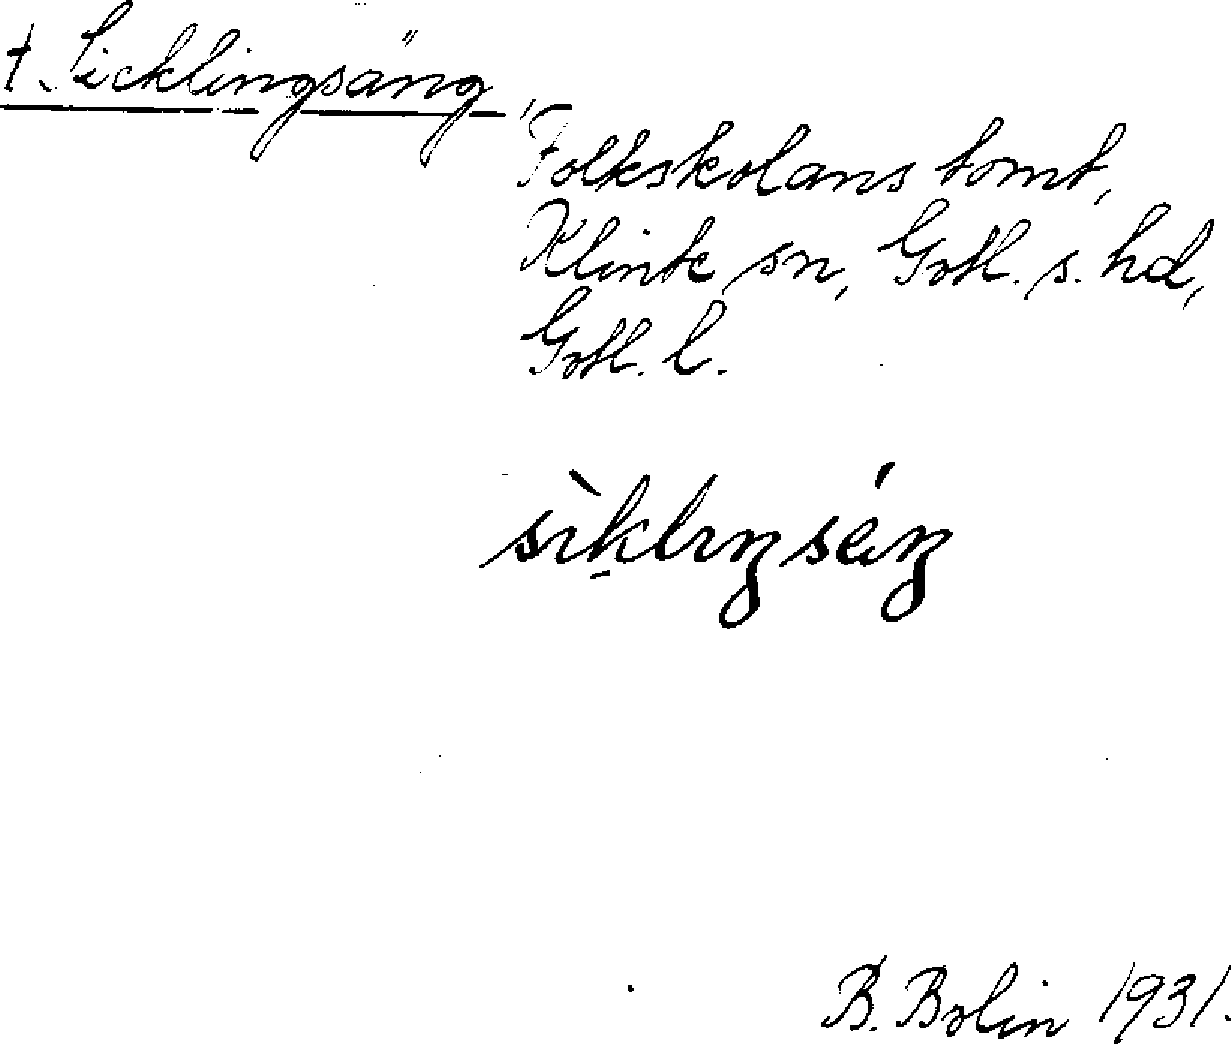 † Sicklingsäng,
Folkskolans tomt,
Klinte sn, Gotl. s. hd,
Gotl. l.
sìklıŋséŋ
B. Bolin 1931.